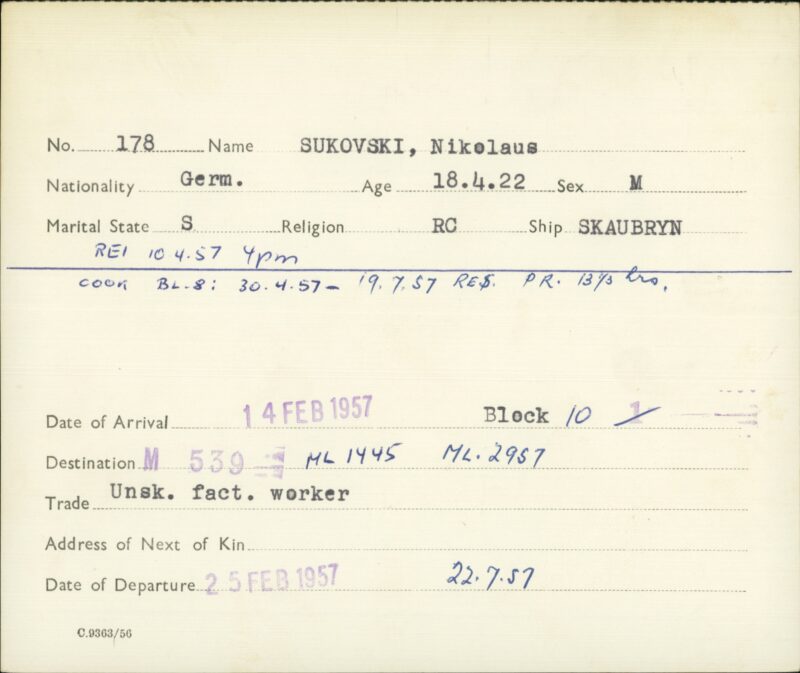 No. 178 Name SUKOVSKI, Nikolaus
Nationality Germ. Age 18.4.22 Sex M
Marital State S Religion RC Ship SKAUBRYN
REI 10.4.57 4pm
COOK BL.8: 30.4.57 - 19.7.57 RES. PR. 13⅓ hrs.
Date of Arrival 14 FEB 1957 Block 10 1
Destination M 539 ML 1445 ML. 2957
Trade Unsk. fact. worker
Address of Next of Kin
Date of Departure 25 FEB 1957 22.7.57
C.9363/56